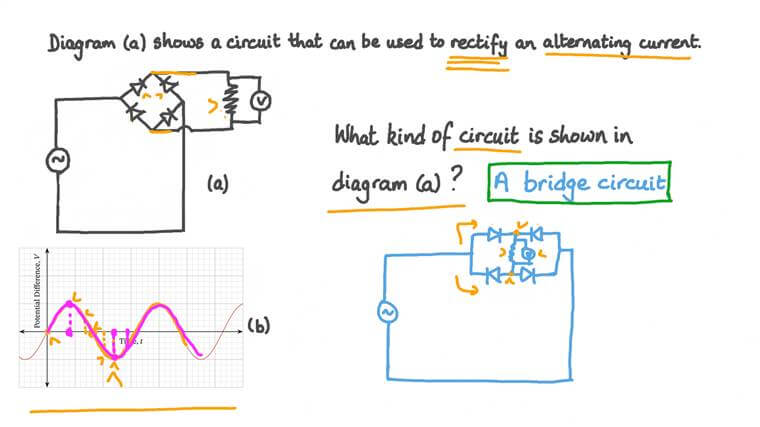 Diagram (a) shows a circuit that can be used to rectify an alternating current.
V
~
(a)
What kind of circuit is shown in
diagram (a)? A bridge circuit
Potential Difference, V
(b)
~